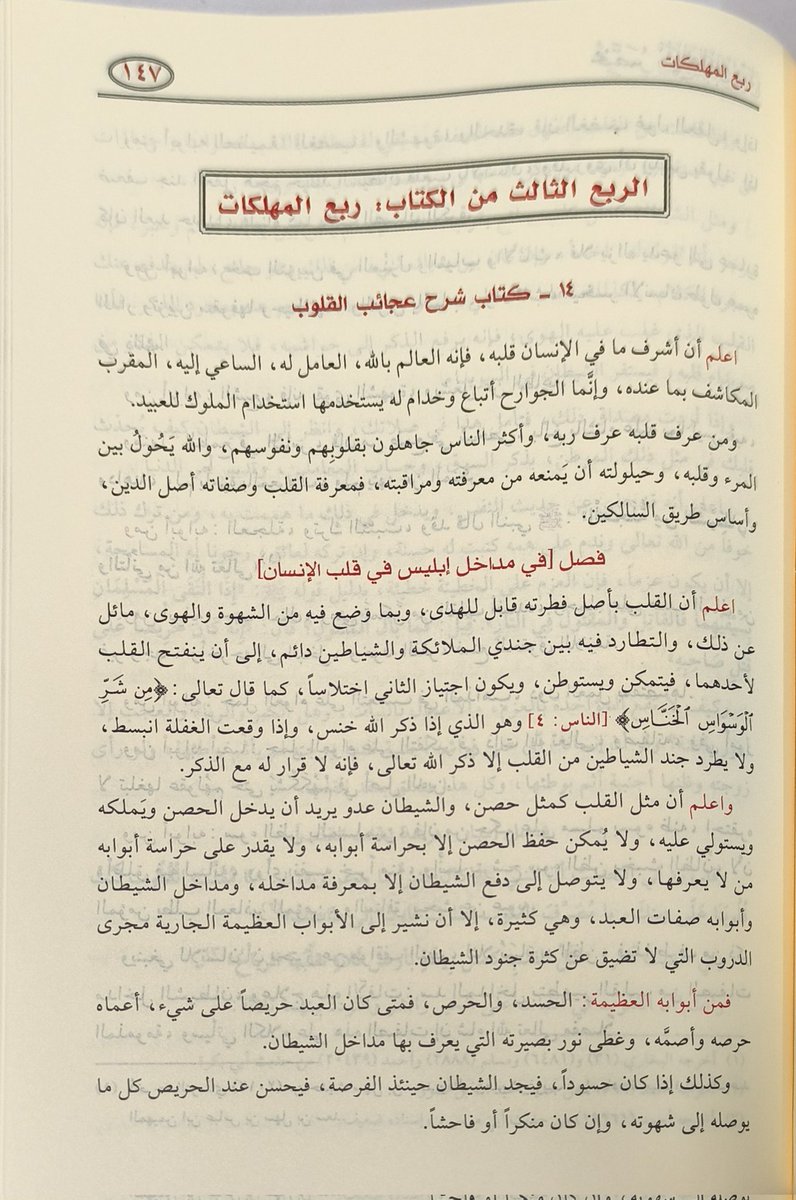 ربع المهلكات
١٤٧
الربع الثالث من الكتاب: ربع المهلكات
١٤ - كتاب شرح عجائب القلوب
اعلم أن أشرف ما في الإنسان قلبه، فإنه العالم بالله، العامل له، الساعي إليه، المقرب
المكاشف بما عنده، وإنَّما الجوارح أتباع وخدام له يستخدمها استخدام الملوك للعبيد.
ومن عرف قلبه عرف ربه، وأكثر الناس جاهلون بقلوبِهم ونفوسهم، والله يَحُولُ بين
المرء وقلبه، وحيلولته أن يَمنعه من معرفته ومراقبته، فمعرفة القلب وصفاته أصل الدين،
وأساس طريق السالكين.
فصل [في مداخل إبليس في قلب الإنسان]
اعلم أن القلب بأصل فطرته قابل للهدى، وبما وضع فيه من الشهوة والهوى، مائل
عن ذلك، والتطارد فيه بين جندي الملائكة والشياطين دائم، إلى أن ينفتح القلب
لأحدهما، فيتمكن ويستوطن، ويكون اجتياز الثاني اختلاساً، كما قال تعالى: ﴿مِن شَرِّ
ٱلْوَسْوَاسِ ٱلْخَنَّاسِ﴾ [الناس: ٤] وهو الذي إذا ذكر الله خنس، وإذا وقعت الغفلة انبسط،
ولا يطرد جند الشياطين من القلب إلا ذكر الله تعالى، فإنه لا قرار له مع الذكر.
واعلم أن مثل القلب كمثل حصن، والشيطان عدو يريد أن يدخل الحصن ويَملكه
ويستولي عليه، ولا يُمكن حفظ الحصن إلا بحراسة أبوابه، ولا يقدر على حراسة أبوابه
من لا يعرفها، ولا يتوصل إلى دفع الشيطان إلا بمعرفة مداخله، ومداخل الشيطان
وأبوابه صفات العبد، وهي كثيرة، إلا أن نشير إلى الأبواب العظيمة الجارية مجرى
الدروب التي لا تضيق عن كثرة جنود الشيطان.
فمن أبوابه العظيمة: الحسد، والحرص، فمتى كان العبد حريصاً على شيء، أعماه
حرصه وأصمَّه، وغطى نور بصيرته التي يعرف بها مداخل الشيطان.
وكذلك إذا كان حسوداً، فيجد الشيطان حينئذ الفرصة، فيحسن عند الحريص كل ما
يوصله إلى شهوته، وإن كان منكراً أو فاحشاً.